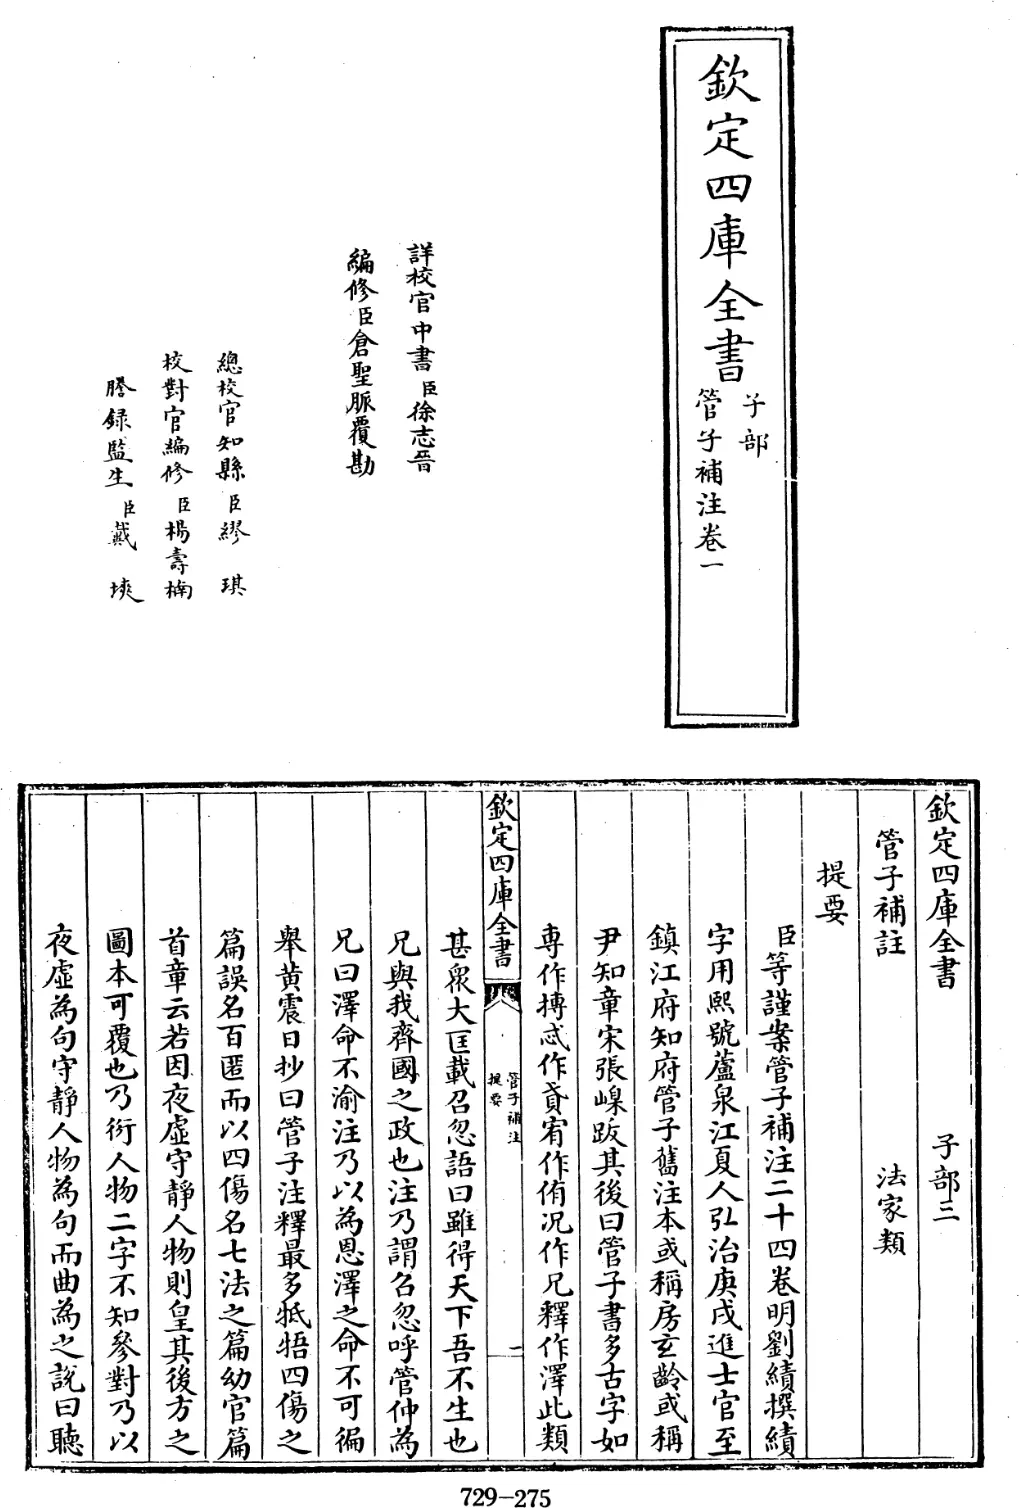 欽定四庫全書
子部
管子補注卷一
詳校官中書臣徐志晉
編修臣倉聖脈覆勘
總校官知縣臣繆琪
校對官編修臣楊壽楠
謄録監生臣戴㙉
欽定四庫全書 子部三
管子補註 法家類
提要
臣等謹案管子補注二十四卷明劉績撰績
字用熙號蘆泉江夏人弘治庚戌進士官至
鎮江府知府管子舊注本或稱房玄齡或稱
尹知章宋張嵲跋其後曰管子書多古字如
専作摶忒作貣宥作侑况作兄釋作澤此類
欽定四庫全書 管子補注 提要 一
甚衆大匡載召忽語曰雖得天下吾不生也
兄與我齊國之政也注乃謂召忽呼管仲為
兄曰澤命不渝注乃以為恩澤之命不可徧
舉黄震日抄曰管子注釋最多牴牾四傷之
篇誤名百匿而以四傷名七法之篇幼官篇
首章云若因夜虚守靜人物則皇其後方之
圖本可覆也乃衍人物二字不知參對乃以
夜虚為句守靜人物為句而曲為之說曰聽
729-275